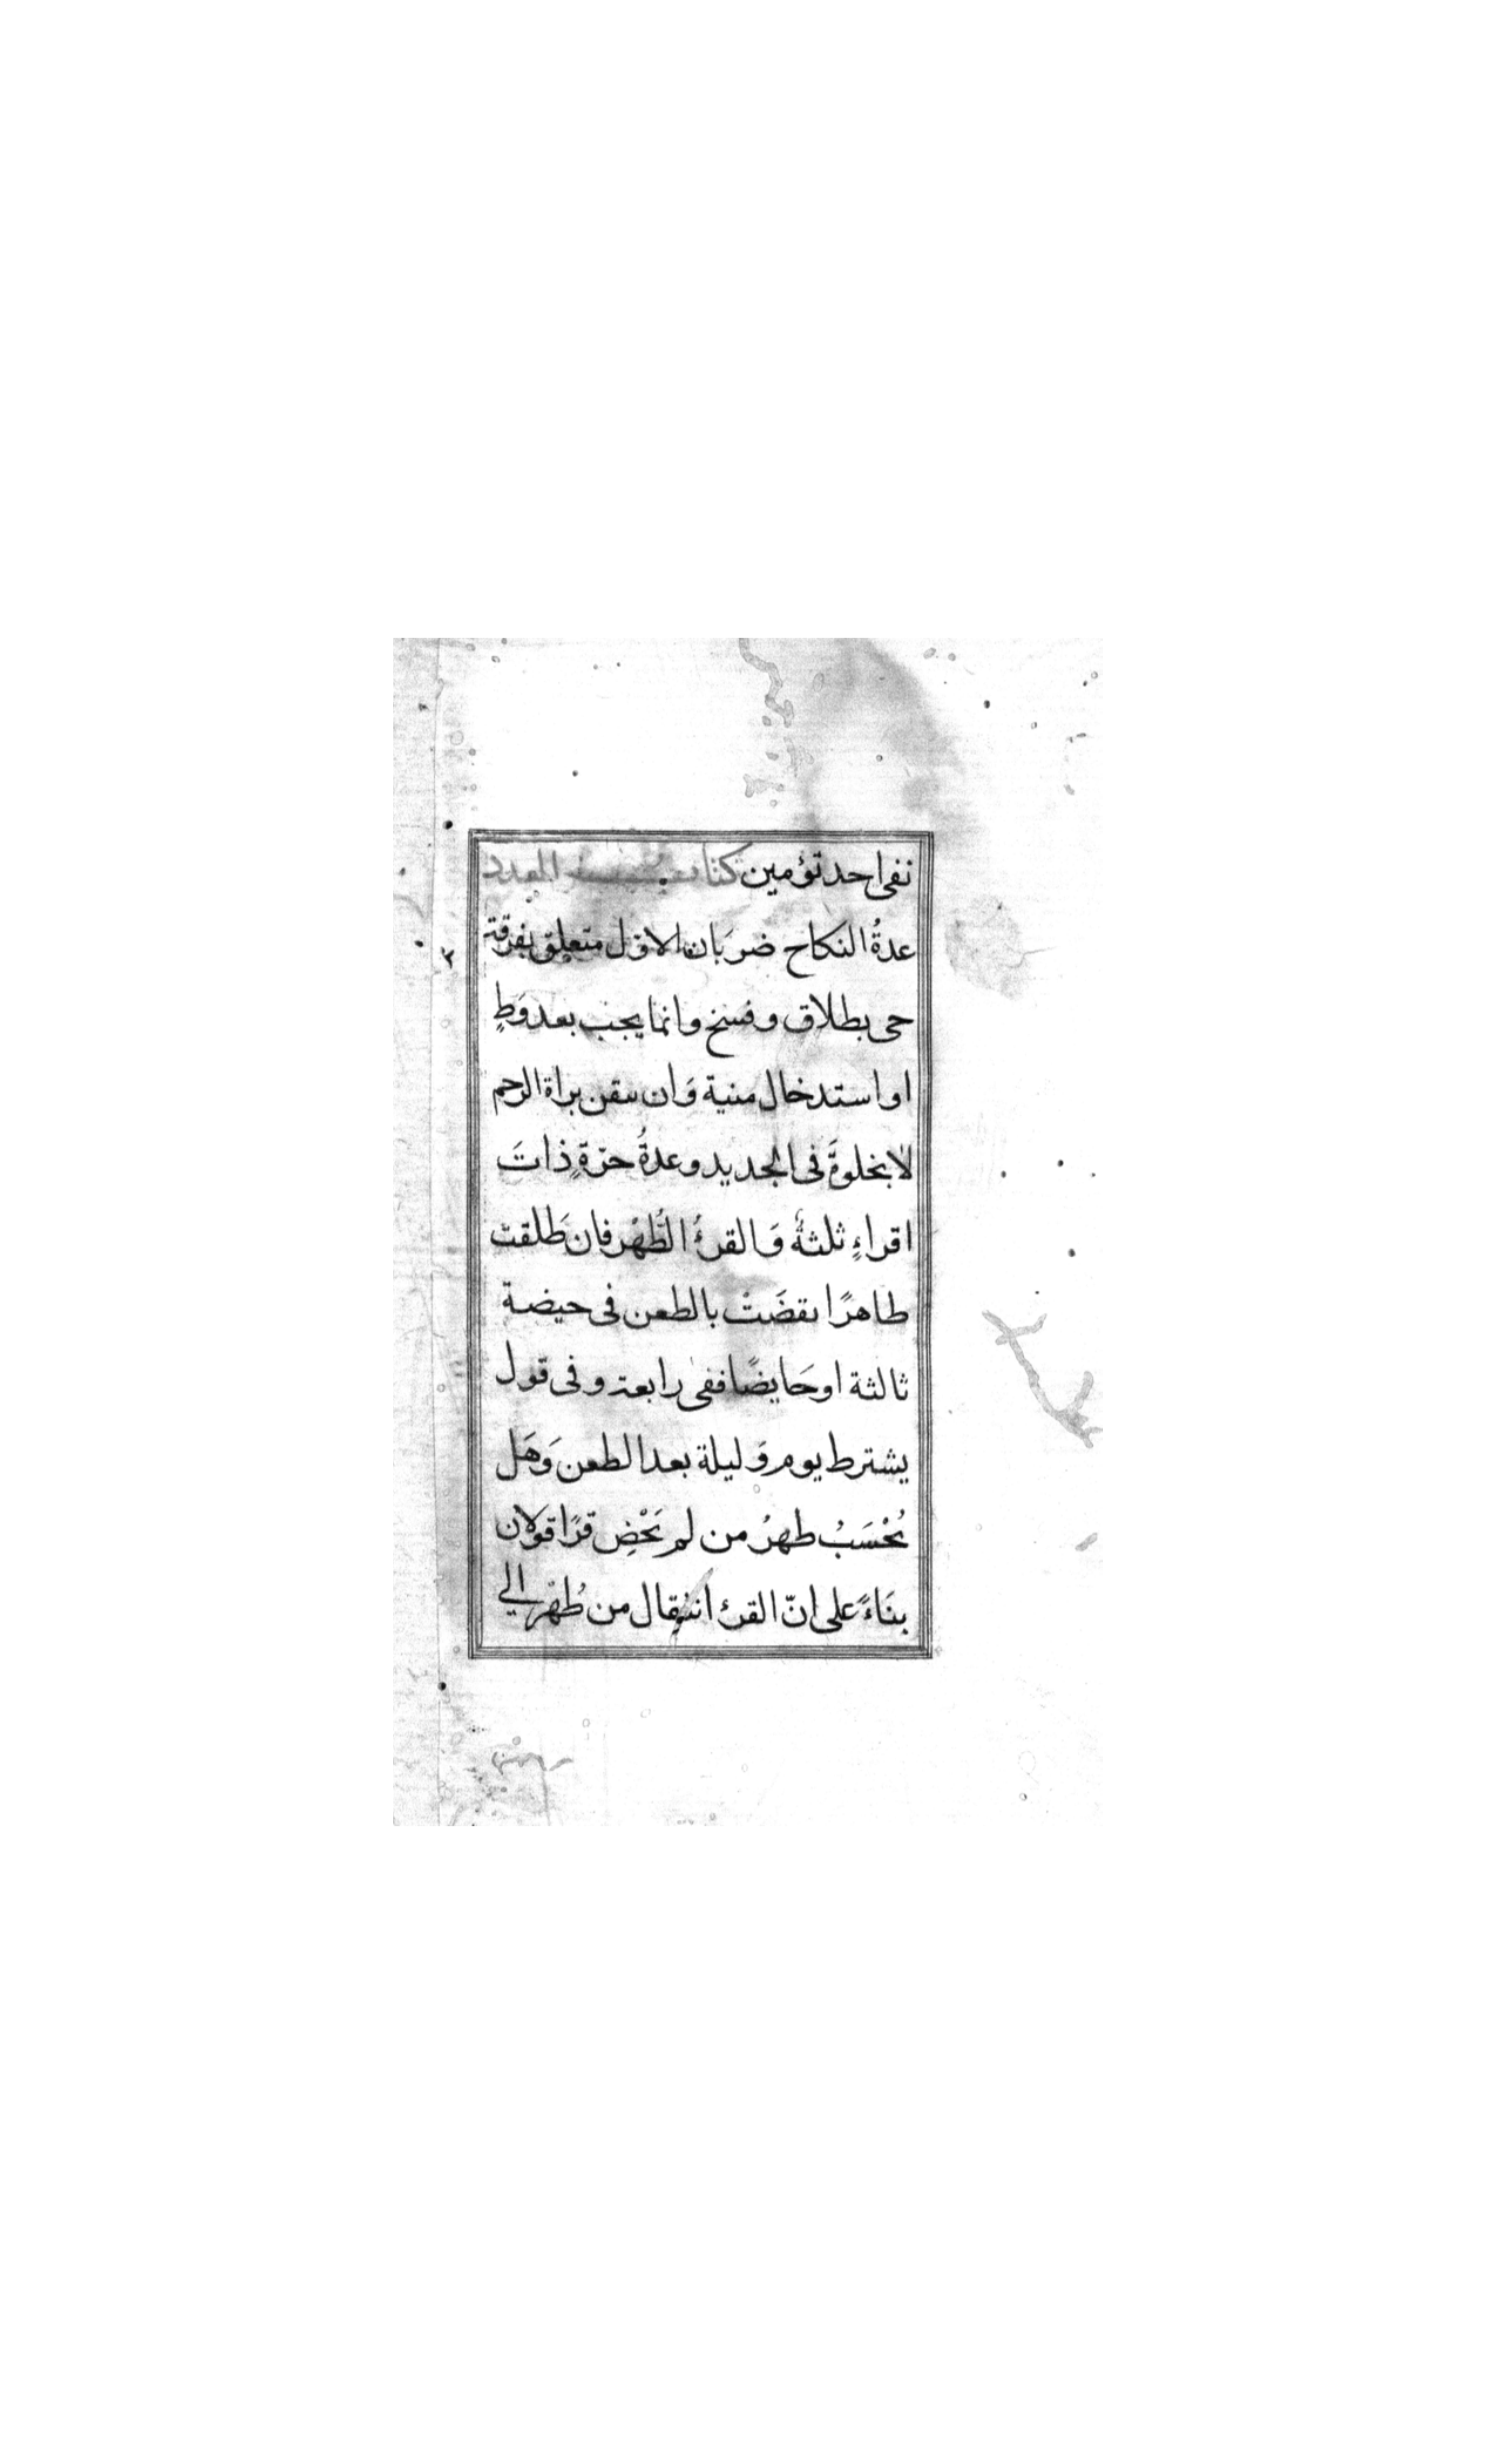 نفى احد تؤمين كتاب العدد
عدةُ النكاح ضربَان الاوّل متعلق بفرقة
حى بطلاق وفسخ وانما يجب بعد وَطءٍ
او استدخال منية وَان تيقن براة الرحم
لا بخلوةَ فى الجديد وعدةُ حرّةٍ ذاتَ
اقراءٍ ثلثةٌ وَالقرءُ الطُّهْر فان طَلقت
طاهرًا نقضَتْ بالطعن فى حيضة
ثالثة او حَايضًا ففى رابعة وفى قول
يشترط يوم وَليلة بعد الطعن وَهَل
يُحْسَبُ طهرُ من لم تَحْضِ قرًا قولان
بنَاءً على انّ القرء انتقال من طُهْر الي